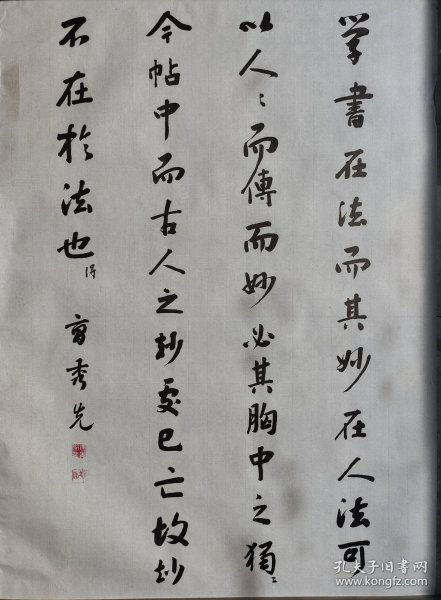 学書在法而其妙在人法可
以人〻而傳而妙必其胸中之獨〻
今帖中而古人之妙处已亡故妙
不在於法也得
曹秀先
孔夫子旧书网
www.kongfz.com